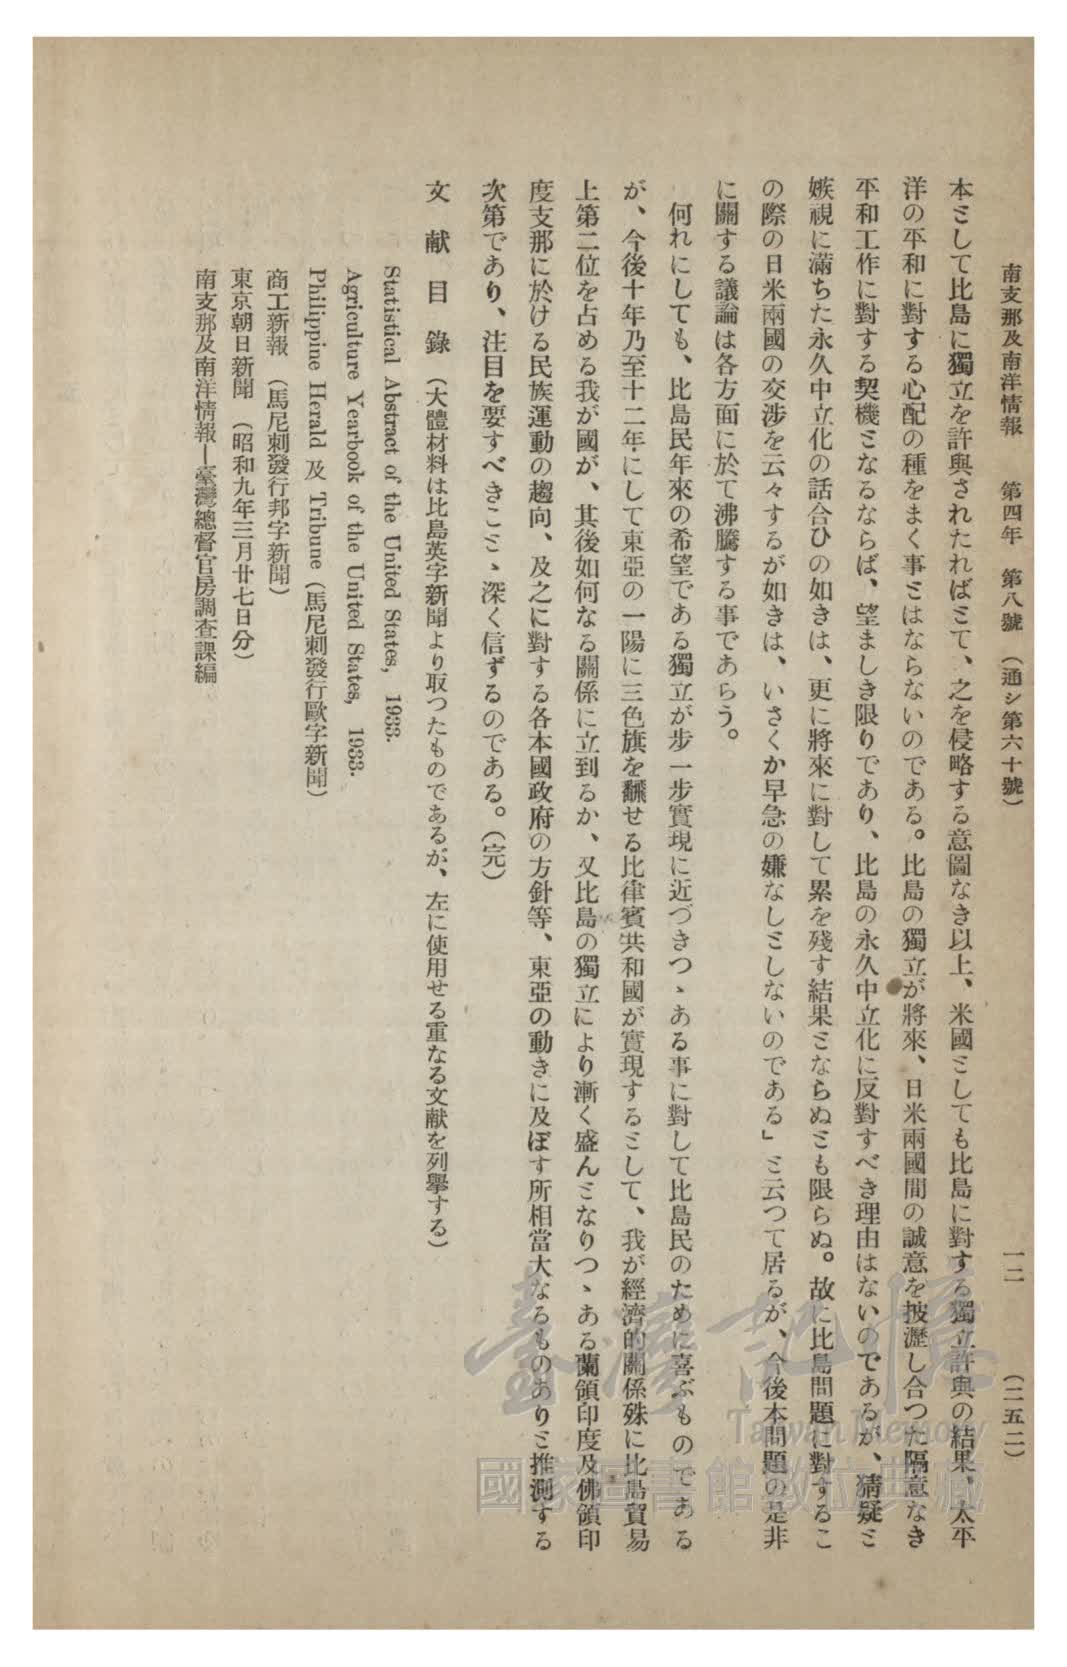 南支那及南洋情報　第四年　第八號　（通シ第六十號）　一二　（二五二）
本ミして比島に獨立を許與されたればミて、之を侵略する意圖なき以上、米國ミしても比島に對する獨立許與の結果、太平
洋の平和に對する心配の種をまく事ミはならないのである。比島の獨立が將來、日米兩國間の誠意を披瀝し合つた隔意なき
平和工作に對する契機ミなるならば、望ましき限りであり、比島の永久中立化に反對すべき理由はないのであるが、猜疑ミ
嫉視に滿ちた永久中立化の話合ひの如きは、更に將來に對して累を殘す結果ミならぬミも限らぬ。故に比島問題に對するこ
の際の日米兩國の交涉を云々するが如きは、いさくか早急の嫌なしミしないのである」ミ云つて居るが、今後本問題の是非
に關する議論は各方面に於て沸騰する事であらう。
何れにしても、比島民年來の希望である獨立が步一步實現に近づきつゝある事に對して比島民のために喜ぶものである
が、今後十年乃至十二年にして東亞の一陽に三色旗を飜せる比律賓共和國が實現するミして、我が經濟的關係殊に比島貿易
上第二位を占める我が國が、其後如何なる關係に立到るか、又比島の獨立により漸く盛んミなりつゝある蘭領印度及佛領印
度支那に於ける民族運動の趨向、及之に對する各本國政府の方針等、東亞の動きに及ぼす所相當大なるものありミ推測する
次第であり、注目を要すべきこミゝ深く信ずるのである。（完）
文獻目錄　（大體材料は比島英字新聞より取つたものであるが、左に使用せる重なる文献を列擧する）
Statistical Abstract of the United States, 1933.
Agriculture Yearbook of the United States, 1933.
Philippine Herald 及 Tribune（馬尼剌發行歐字新聞）
商工新報　（馬尼剌發行邦字新聞）
東京朝日新聞　（昭和九年三月廿七日分）
南支那及南洋情報―臺灣總督官房調查課編
臺灣記憶
Taiwan Memory
國家圖書館數位典藏